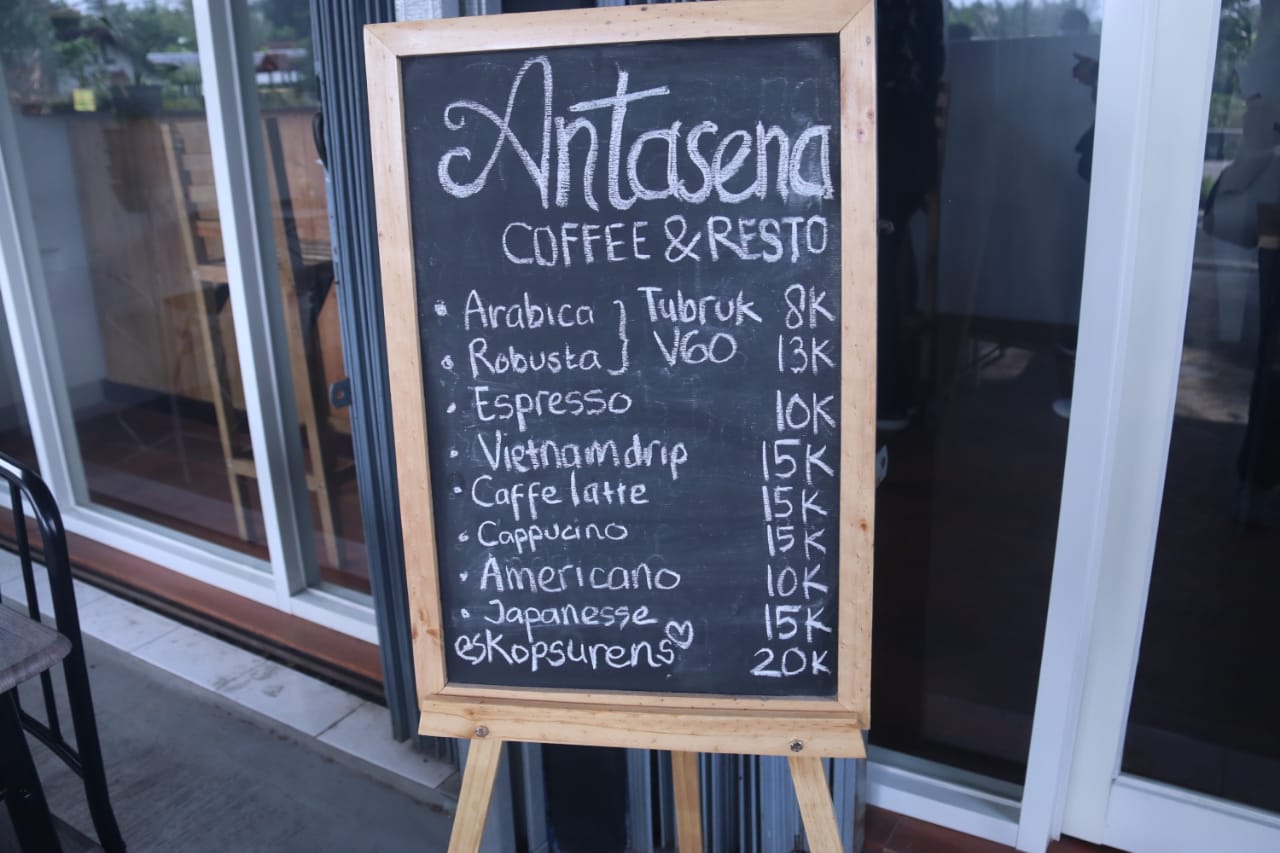 Antasena
COFFEE & RESTO
• Arabica } Tubruk 8K
• Robusta } V60 13K
• Espresso 10K
• Vietnam drip 15K
• Caffe latte 15K
• Cappucino 15K
• Americano 10K
• Japanesse 15K
esKopsurens♡ 20K